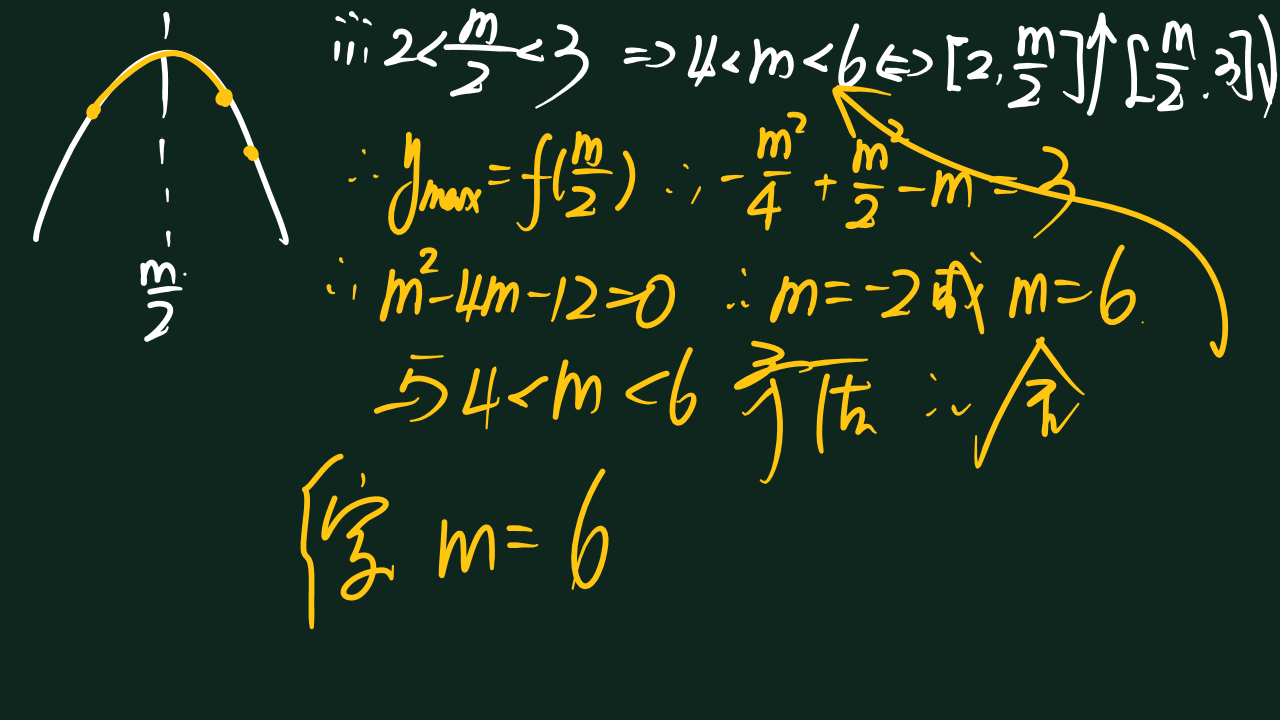 iii 2<m/2<3 ⇒ 4<m<6 ⇔ [2, m/2]↑ [m/2, 3]↓
∵ y_max = f(m/2) ∴ -m²/4 + m²/2 - m = 3
m/2
∴ m²-4m-12=0 ∴ m=-2或 m=6
与4<m<6 矛盾 ∴ 舍
{综 m=6